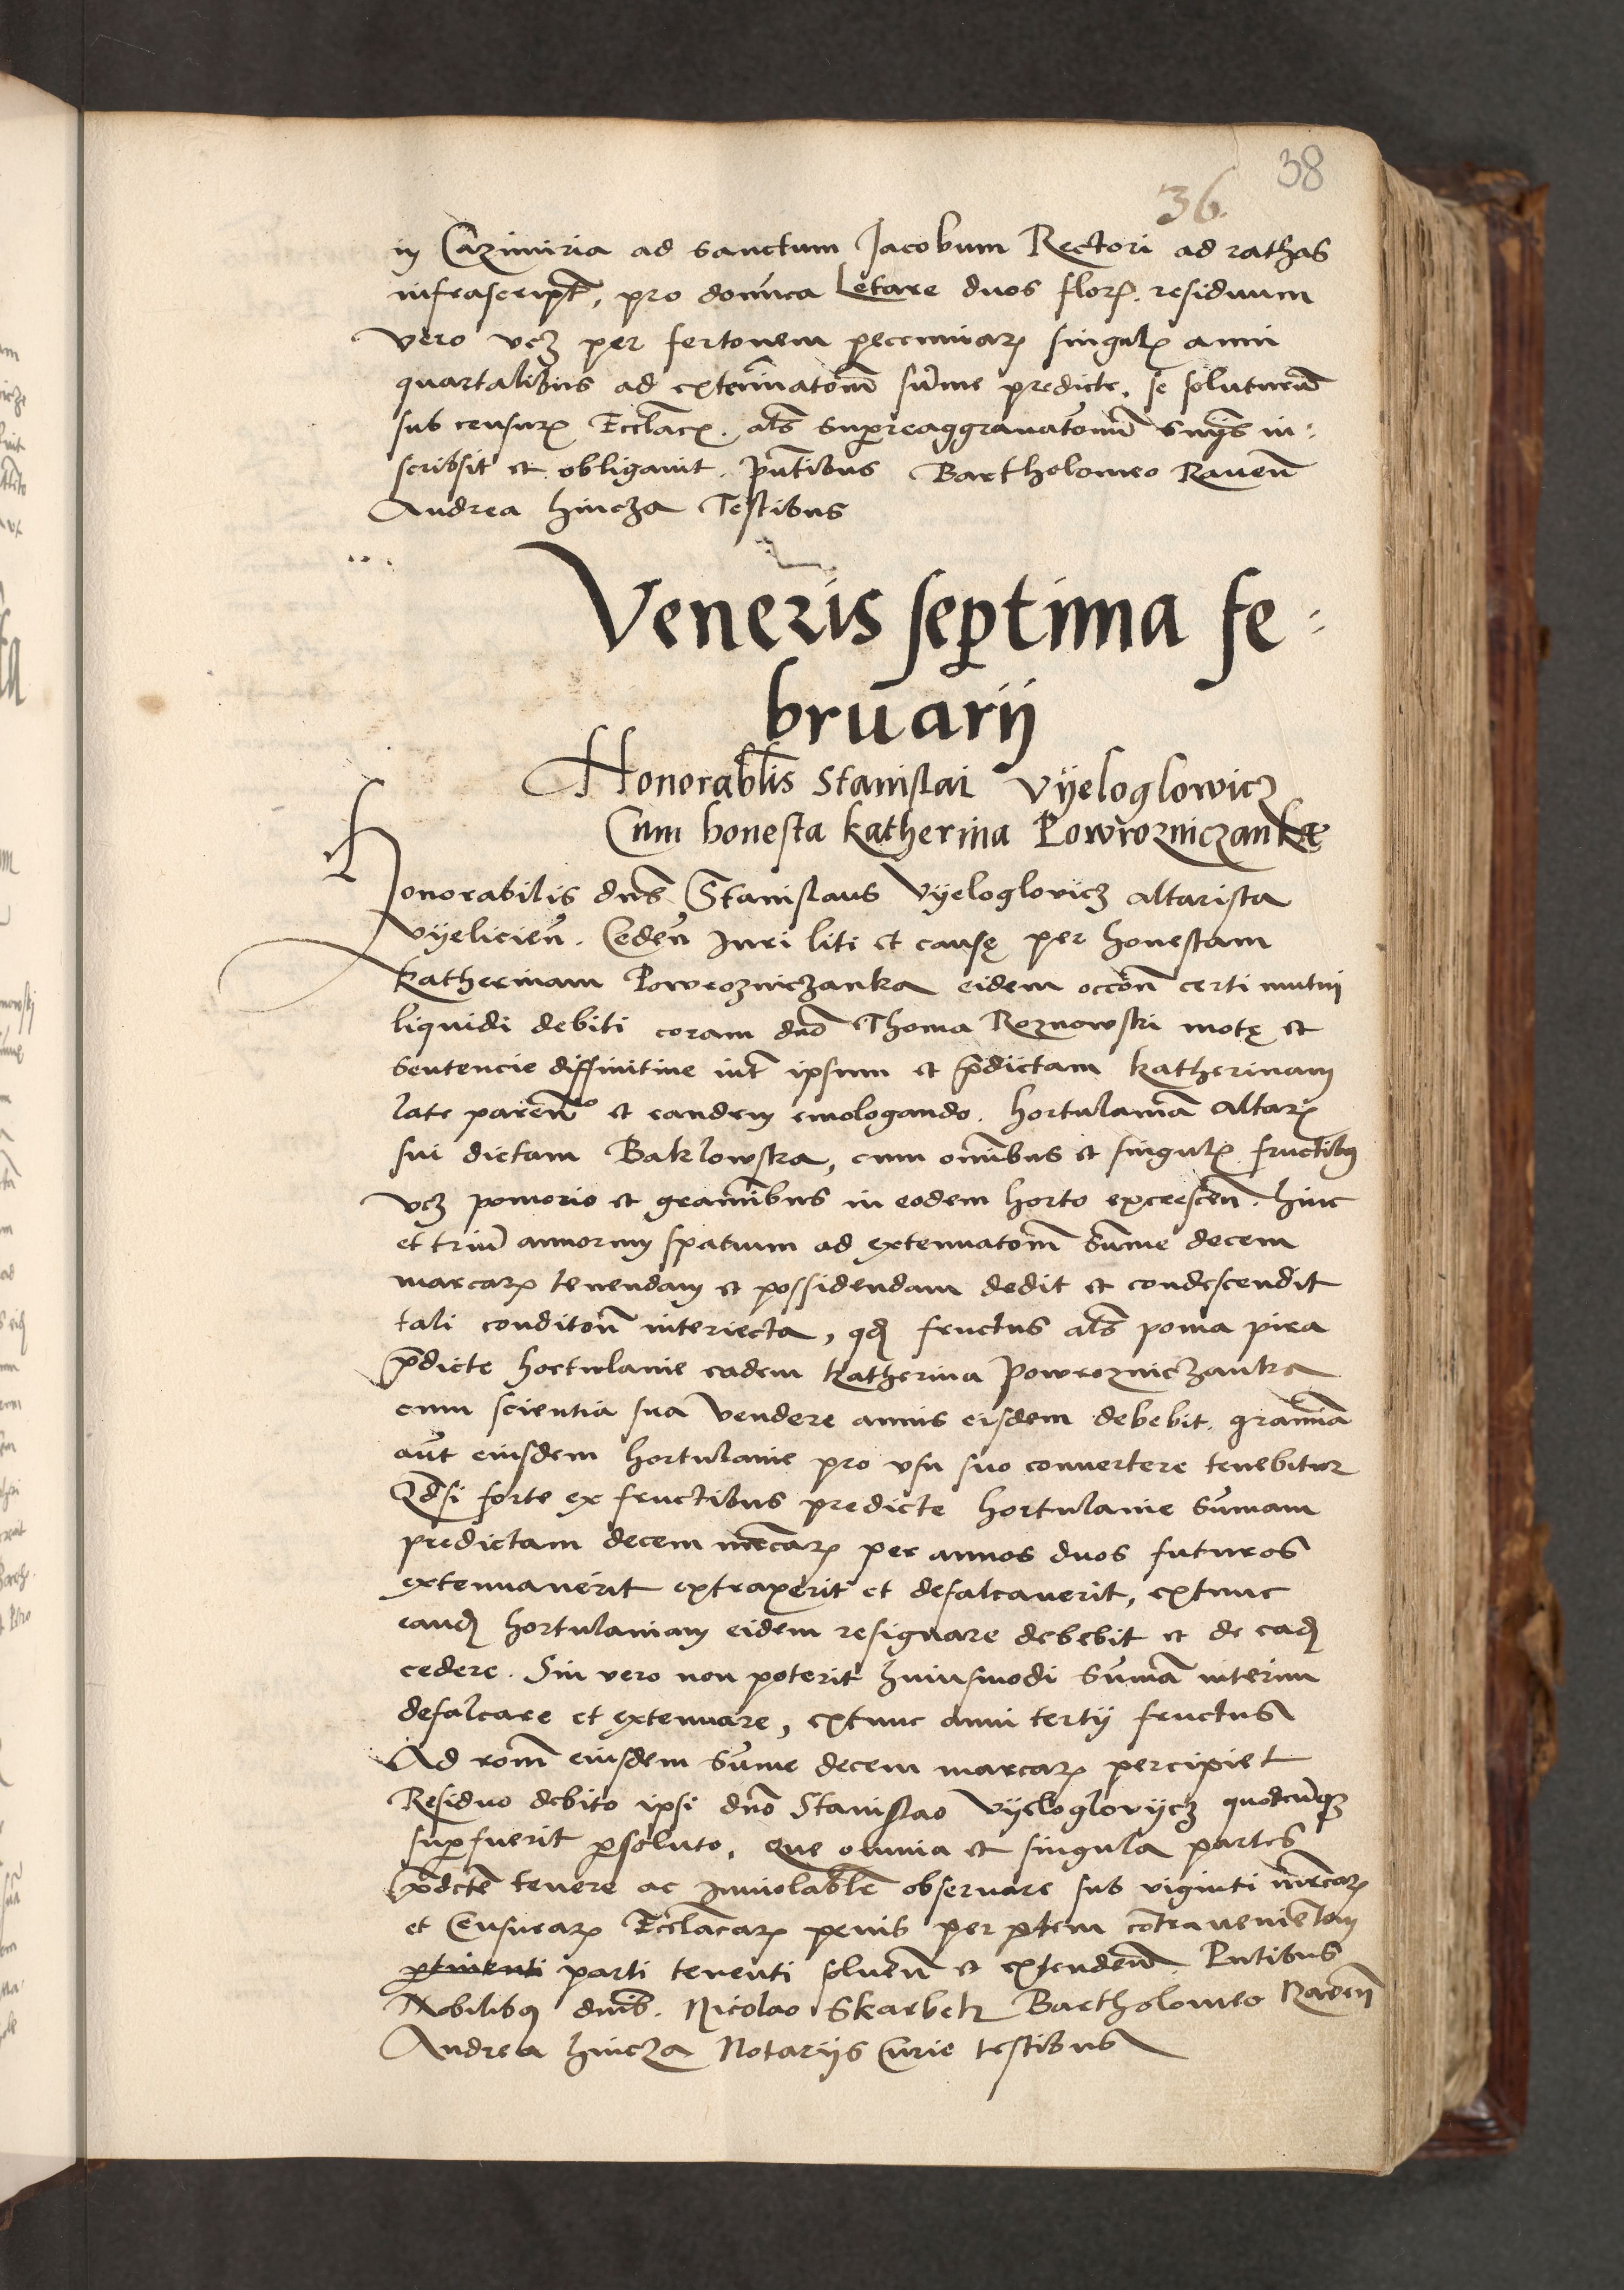 38
36.
in Cazimiria ad sanctum Jacobum Rectori ad rathas
infrascript̃, pro domĩca Letare duos floꝝ. residuum
vero vcȝ per fertonem pecuniaꝝ singulꝭ anni
quartalibus ad extenuatoñ sum̃e predicte, se soluturũ
sub censurꝭ Ecclãcꝭ. al̃s superaggrauatoniũ in:
scribsit et obligauit. pñtibus Bartholomeo Raueñ
Andrea hincza Testibus
Veneris septima fe:
bruarij
Honorabl̃is Stanislai Vyeloglowicz
Cum honesta Katherina Powrozniczanka
Honorabilis dñs Stanislaus Vyeloglovicȝ altarista
Vyelicieñ. Cedeñ Juri liti et causę per honestam
Katherinam Powrozniczanka eidem occõñ certi mutui
liquidi debiti coram dño Thoma Roznowski motę et
sentencie diffinitiue int̃ ipsum et p̃dictam Katherinam
late pareñ et eandem emologando. hortulaniã altarꝭ
sui dictam Baklowska, cum om̃ibus et singulꝭ fructibꝯ
vcȝ pomorio et gramĩbus in eodem horto excresceñ. hinc
et triũ annorum spatium ad extenuatoñ sum̃e decem
marcaꝝ tenendam et possidendam dedit et condescendit
tali conditoñ interiecta, qđ fructus al̃s poma pira
p̃dicte hortulanie eadem Katherina Powrozniczanka
cum scientia sua vendere annis eisdem debebit. gramĩa
aut̃ eiusdem hortulanie pro vsu suo conuertere tenebitur
Qđsi forte ex fructibus predicte hortulanie sum̃am
predictam decem mr̃caꝝ per annos duos futuros
extenuauerit extraxerit et defalcauerit, extunc
eanđ hortulaniam eidem resignare debebit et de eađ
cedere. Sin vero non poterit huiusmodi sum̃ã interim
defalcare et extenuare, extunc anni tertij fructus
Ad roñ eiusdem sum̃e decem marcaꝝ percipiet
Residuo debito ipsi dño Stanislao Vyeloglovycȝ quodcũqȝ
supfuerit psoluto. Que omnia et singula partes
p̃dctẽ tenere ac Inuiolabl̃r obseruare sub viginti mr̃caꝝ
et Censuraꝝ Ecclãcaꝝ penis per ptem cõtrauenientem
parti tenenti solueñ et extendeñ. Pñtibus
Nobilibꝯ dnĩs. Nicolao Skarbek Bartholomeo Raueñ
Andrea hincza Notarijs Curie testibus